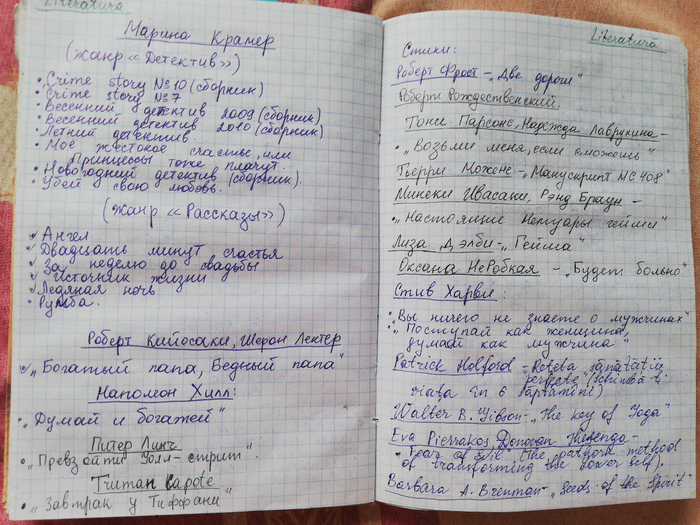 Literatura
Марина Крамер
(жанр «Детектив»)
• Crime story № 10 (сборник)
• Crime story № 7
• Весенний детектив 2009 (сборник)
• Весенний детектив 2010 (сборник)
• Летний детектив.
• Мое жестокое счастье, или
Принцессы тоже плачут.
• Новогодний детектив (сборник).
• Убей свою любовь.
(жанр «Рассказы»)
Ангел
Двадцать минут счастья
За неделю до свадьбы
Источник жизни
Ледяная ночь
Румба.
Роберт Кийосаки, Шерон Лектер
„Богатый папа, Бедный папа"
Наполеон Хилл:
• „Думай и богатей"
Питер Линч
• „Превзойти Уолл-стрит".
Truman Capote
• „Завтрак у Тиффани"
Literatura
Стихи:
Роберт Фрост – „Две дороги"
Роберт Рождественский.
Тони Парсонс, Надежда Лаврухина –
• „Возьми меня, если сможешь"
Тьерри Можене – „Манускрипт МС 408"
Минеки Ивасаки, Рэнд Браун –
• „Настоящие мемуары гейши"
Лиза Дэлби – „Гейша"
Оксана НеРобкая – „Будет больно"
Стив Харви:
• „Вы ничего не знаете о мужчинах"
• „Поступай как женщина,
думай как мужчина"
Patrick Holford – Reteta sănătății
perfecte" (schimbă-ți
viața în 6 săptămîni)
Walter B. Gibson – „The key of Yoga"
Eva Pierrakos, Donovan Thesenga –
• „Fear of Evil" (The pathwork method
of transforming the lower self).
Barbara A. Brennan – „Seeds of the Spirit"